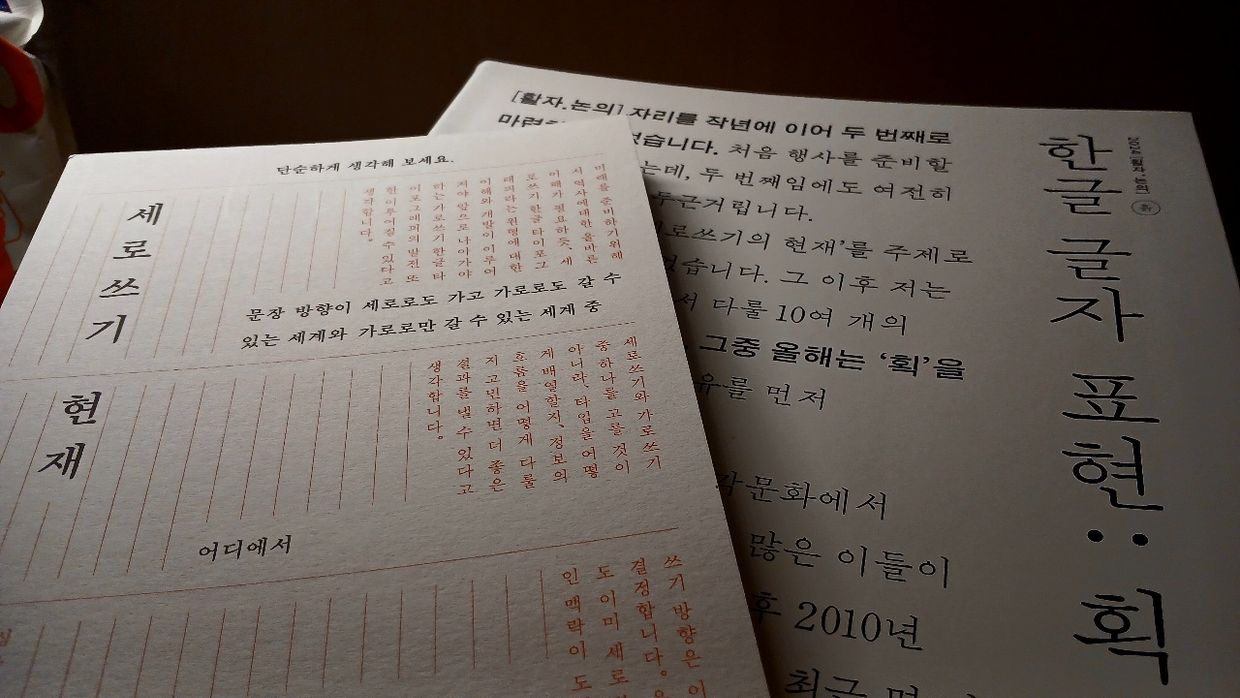 단순하게 생각해 보세요.
세로쓰기
현재
미래를 준비하기 위해
서 역사에 대한 올바른
이해가 필요하듯, 세
로쓰기 한글 타이포그
래피라는 원형에 대한
이해와 개발이 이루어
져야 앞으로 나아가야
하는 가로쓰기 한글 타
이포그래피의 발전 또
한 이루어질 수 있다고
생각합니다.
문장 방향이 세로로도 가고 가로로도 갈 수
있는 세계와 가로로만 갈 수 있는 세계 중
세로쓰기와 가로쓰기
중 하나를 고를 것이
아니라, 타입을 어떻
게 배열할지, 정보의
흐름을 어떻게 다룰
지 고민하면 더 좋은
결과를 낼 수 있다고
생각합니다.
어디에서
쓰기 방향은 이
결정합니다.
도 이미 세로
인 맥락이 도
[활자.논의] 자리를 작년에 이어 두 번째로
습니다. 처음 행사를 준비할
는데, 두 번째임에도 여전히
두근거립니다.
로쓰기의 현재’를 주제로
습니다. 그 이후 저는
서 다룰 10여 개의
그중 올해는 ‘획’을
유를 먼저
문화에서
많은 이들이
후 2010년
최근 몇
한글 글자 표현: 획
2024 활자.논의